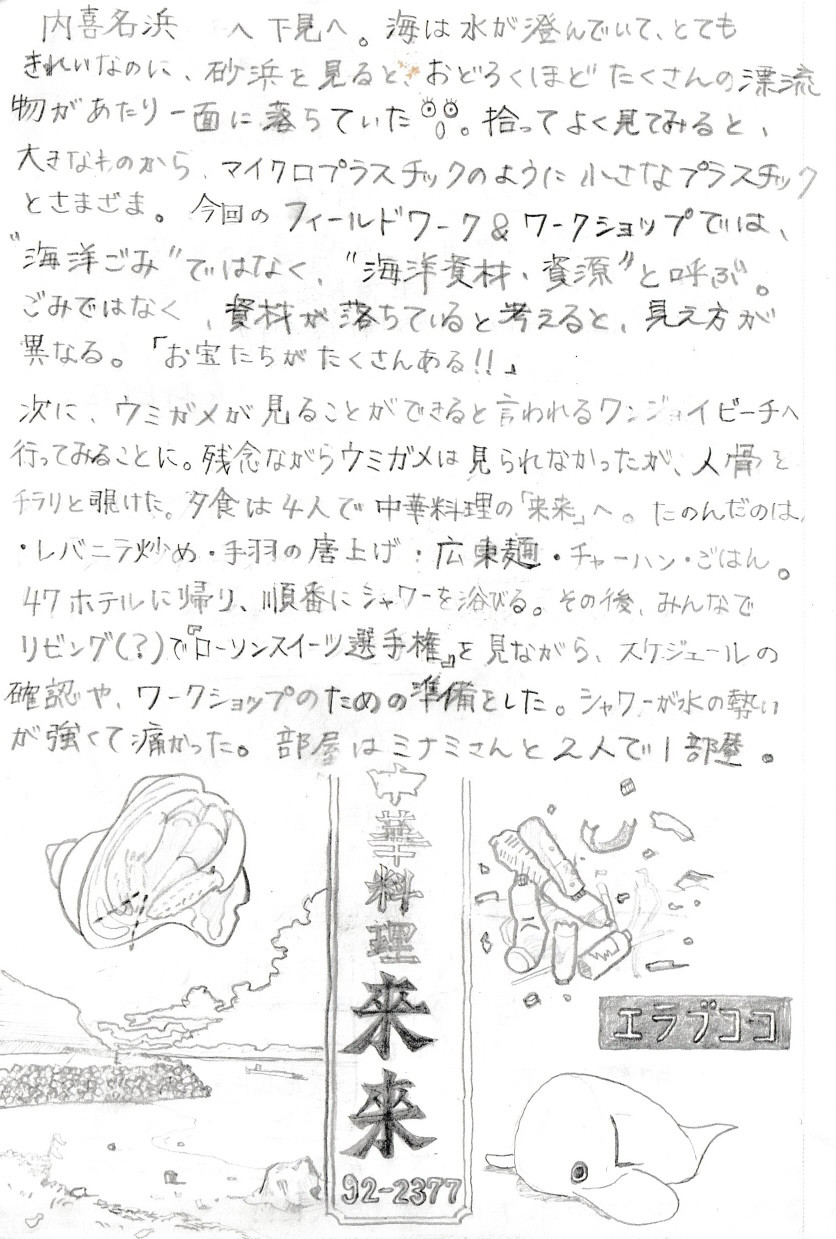 内喜名浜 へ下見へ。海は水が澄んでいて、とても
きれいなのに、砂浜を見ると、おどろくほど たくさんの漂流
物があたり一面に落ちていた。拾ってよく見てみると、
大きなものから、マイクロプラスチックのように小さなプラスチック
とさまざま。今回のフィールドワーク&ワークショップでは、
"海洋ごみ"ではなく、"海洋資材・資源"と呼ぶ。
ごみではなく、資材が落ちていると考えると、見え方が
異なる。「お宝たちがたくさんある!!」
次に、ウミガメが見ることができると言われるワンジョイビーチへ
行ってみることに。残念ながらウミガメは見られなかったが、人骨を
チラリと覗けた。夕食は4人で中華料理の「来来」へ。たのんだのは、
・レバニラ炒め・手羽の唐上げ・広東麺・チャーハン・ごはん。
47ホテルに帰り、順番にシャワーを浴びる。その後、みんなで
リビング(?)で『ローソンスイーツ選手権』を見ながら、スケジュールの
確認や、ワークショップのための準備をした。シャワーが水の勢い
が強くて痛かった。部屋はミナミさんと2人で1部屋。
中華料理
來來
92-2377
エラブココ